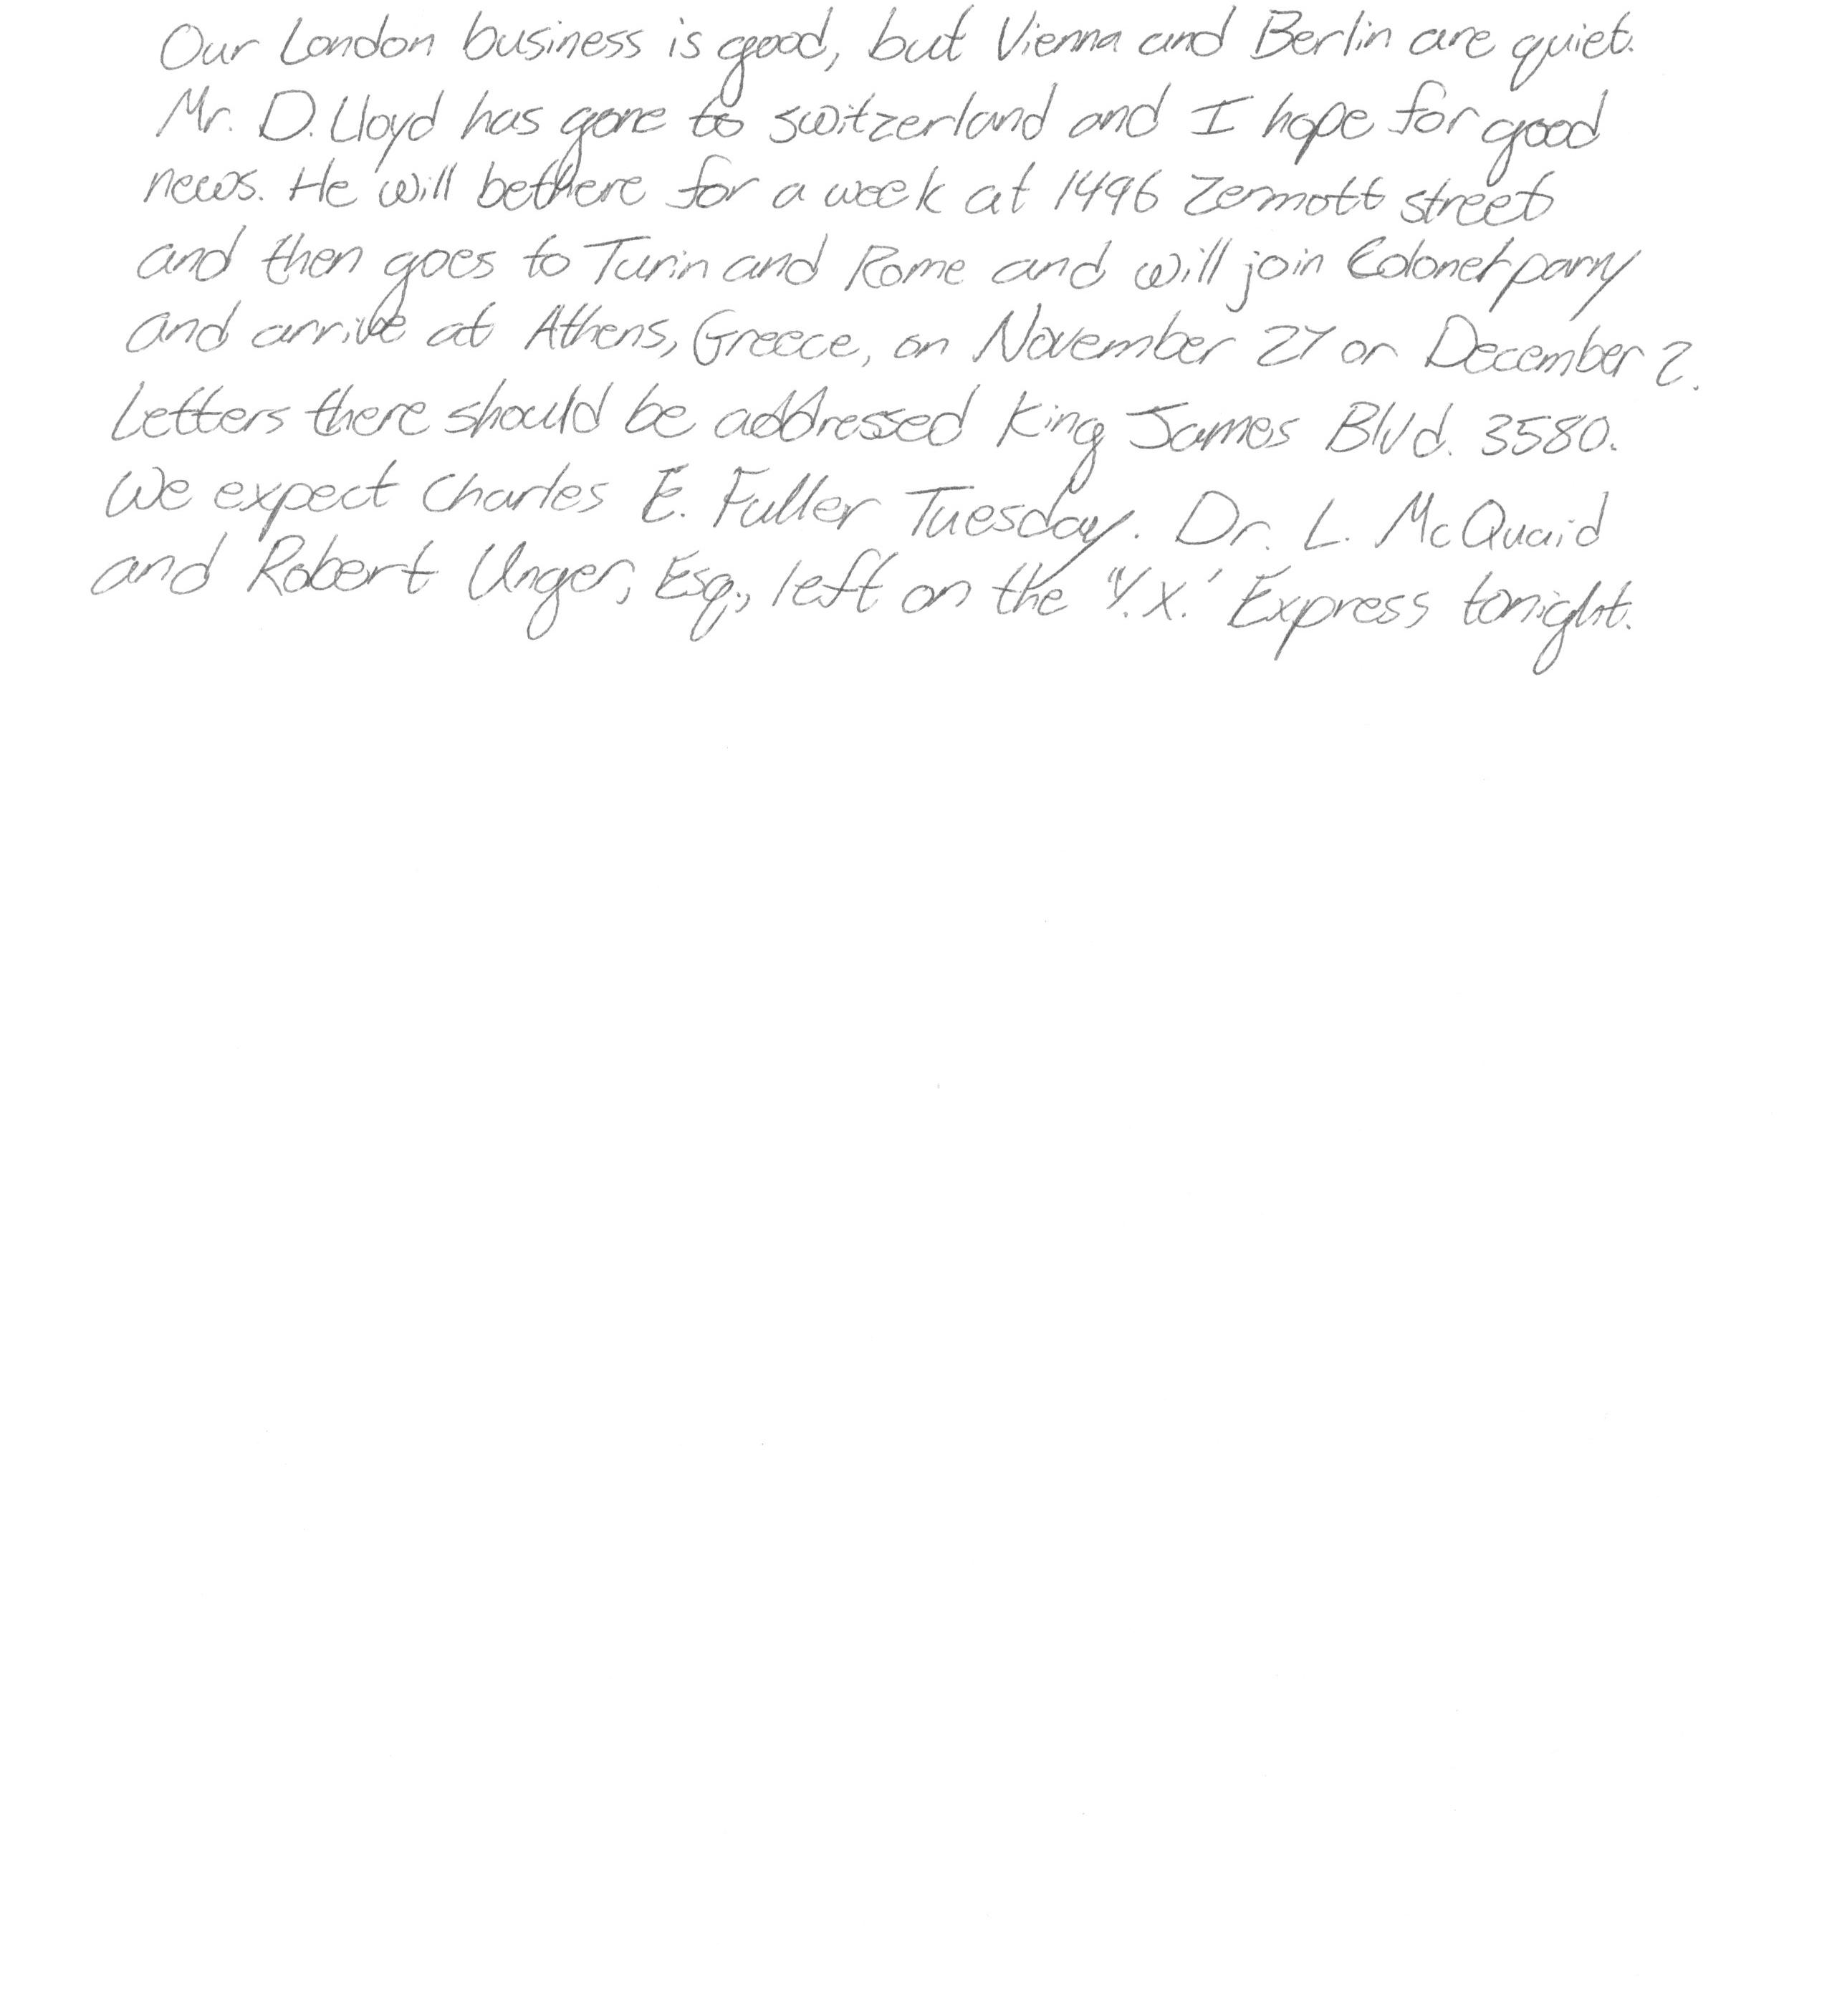 Our London business is good, but Vienna and Berlin are quiet.
Mr. D. Lloyd has gone to switzerland and I hope for good
news. He will be there for a week at 1496 Zermott street
and then goes to Turin and Rome and will join Colonel parry
and arrive at Athens, Greece, on November 27 or December 2.
Letters there should be addressed King James Blvd. 3580.
We expect Charles E. Fuller Tuesday. Dr. L. McQuaid
and Robert Unger, Esq., left on the "Y.X.' Express tonight.